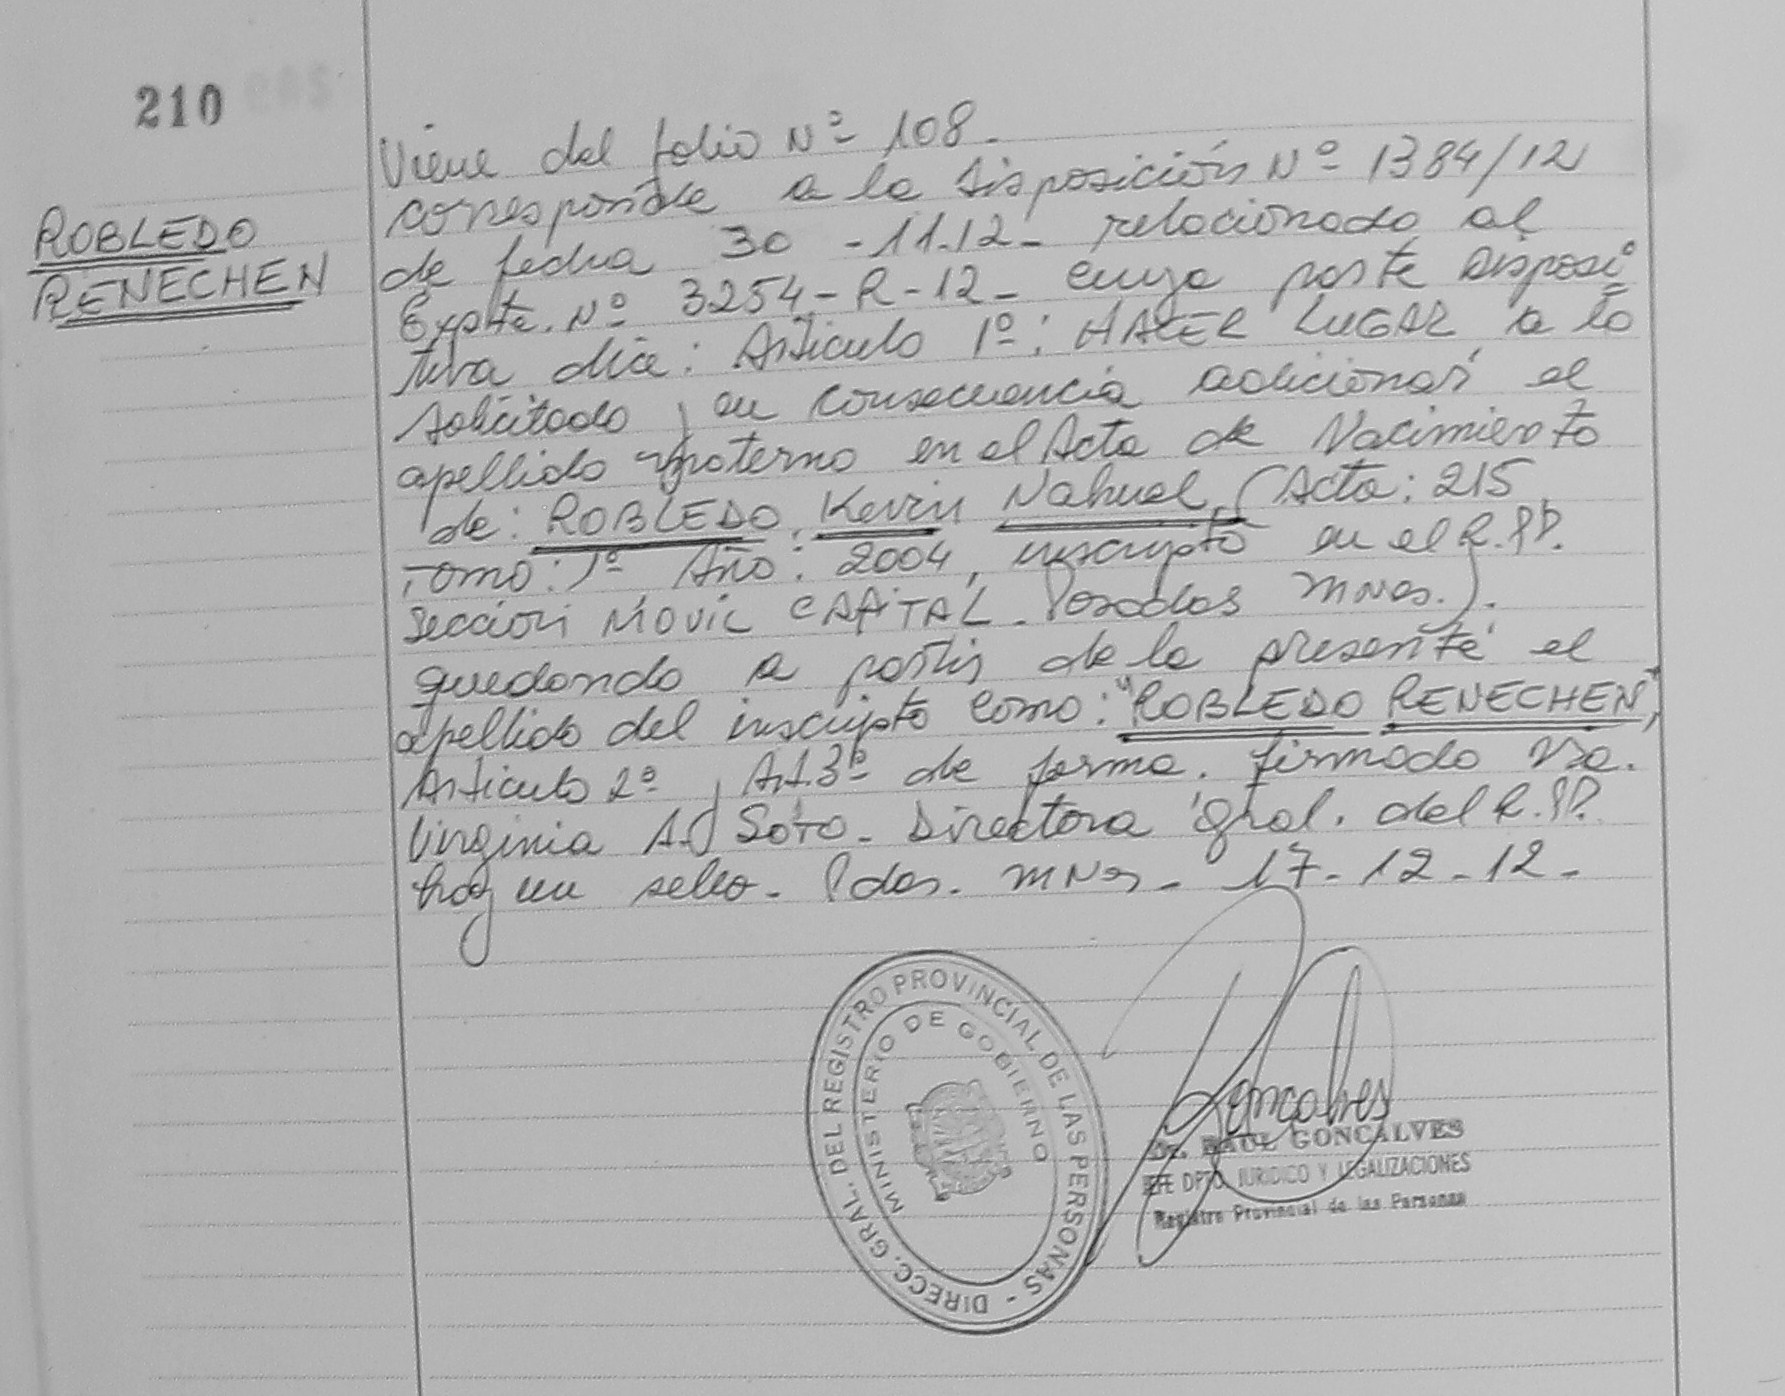 210
ROBLEDO
RENECHEN
Viene del folio Nº 108.
corresponde a la disposición Nº 1384/12
de fecha 30 - 11.12 - relacionado al
Expte. Nº 3254 - R - 12 - cuya parte disposi
tiva dice: Articulo 1º: HACER LUGAR a lo
solicitado, en consecuencia adicionar el
apellido materno en el Acta de Nacimiento
de: ROBLEDO, Kevin Nahuel, (Acta: 215
Tomo: 1º Año: 2004, inscripto en el R.PP.
sección MOVIL CAPITAL. Posadas MNes.).
quedando a partir de la presente el
apellido del inscripto como: "ROBLEDO RENECHEN",
Articulo 2º, Art. 3º de forma. firmado
Virginia A. Soto - Directora Gral. del R.PP.
hay un sello - Pdas. MNes - 17 - 12 - 12 -
DIRECC. GRAL. DEL REGISTRO PROVINCIAL DE LAS PERSONAS -
MINISTERIO DE GOBIERNO
Goncalves
Dr. RAUL GONCALVES
JEFE DPTO. JURIDICO Y LEGALIZACIONES
Registro Provincial de las Personas